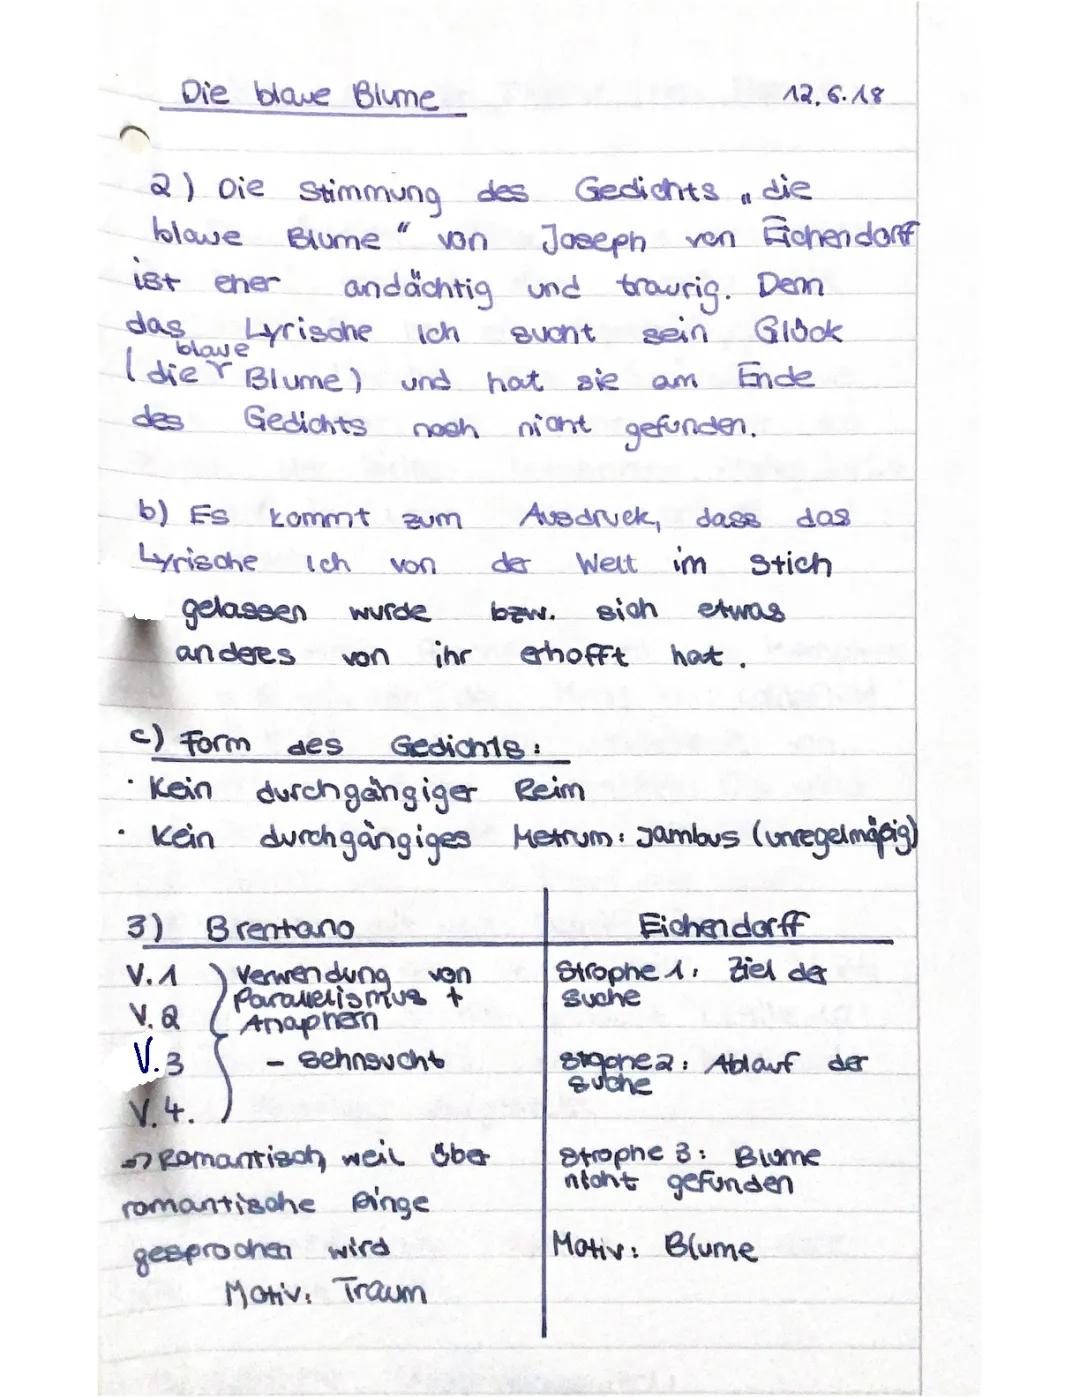 Die blaue Blume 12.6.18
2) Die Stimmung des Gedichts „die
blaue Blume" von Joseph von Eichendorff
ist eher andächtig und traurig. Denn
das Lyrische Ich sucht sein Glück
(die blaue Blume) und hat sie am Ende
des Gedichts noch nicht gefunden.
b) Es kommt zum Ausdruck, dass das
Lyrische Ich von der Welt im Stich
gelassen wurde bzw. sich etwas
anderes von ihr erhofft hat.
c) Form des Gedichts:
· Kein durchgängiger Reim
· Kein durchgängiges Metrum: Jambus (unregelmäßig)
3) Brentano
V.1
V.2
V.3
V.4.
Verwendung von
Parallelismus +
Anaphern
- Sehnsucht
=> Romantisch, weil über
romantische Dinge
gesprochen wird
Motiv: Traum
Eichendorff
Strophe 1: Ziel der
Suche
Strophe 2: Ablauf der
Suche
Strophe 3: Blume
nicht gefunden
Motiv: Blume